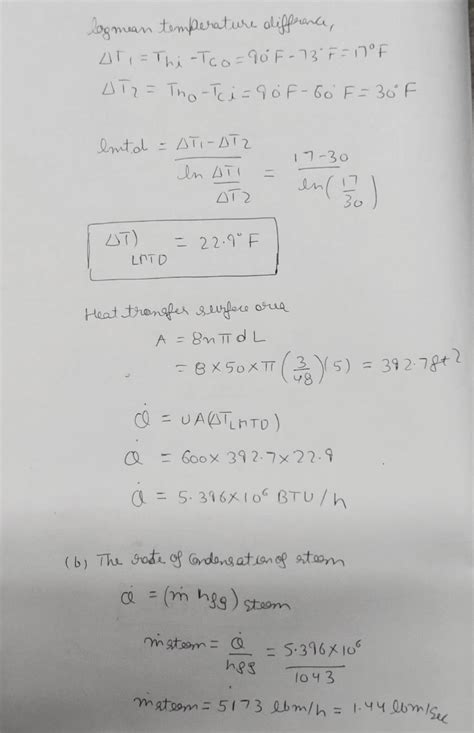 logmean temperature diffrance,
ΔT1 = Thi - Tco = 90°F - 73°F = 17°F
ΔT2 = Tho - Tci = 90°F - 60°F = 30°F
lmtd = ΔT1 - ΔT2 / ln ΔT1/ΔT2 = 17-30 / ln(17/30)
ΔT)LMTD = 22.9°F
Heat transfer surface area
A = 8nπdL
= 8 × 50 × π (3/48) (5) = 392.7ft2
Q̇ = UA(ΔTLMTD)
Q̇ = 600 × 392.7 × 22.9
Q̇ = 5.396 × 10^6 BTU/h
(b) The rate of condensation of steam
Q̇ = (ṁ hfg)steam
ṁsteam = Q̇/hfg = 5.396×10^6 / 1043
ṁsteam = 5173 lbm/h = 1.44 lbm/sec